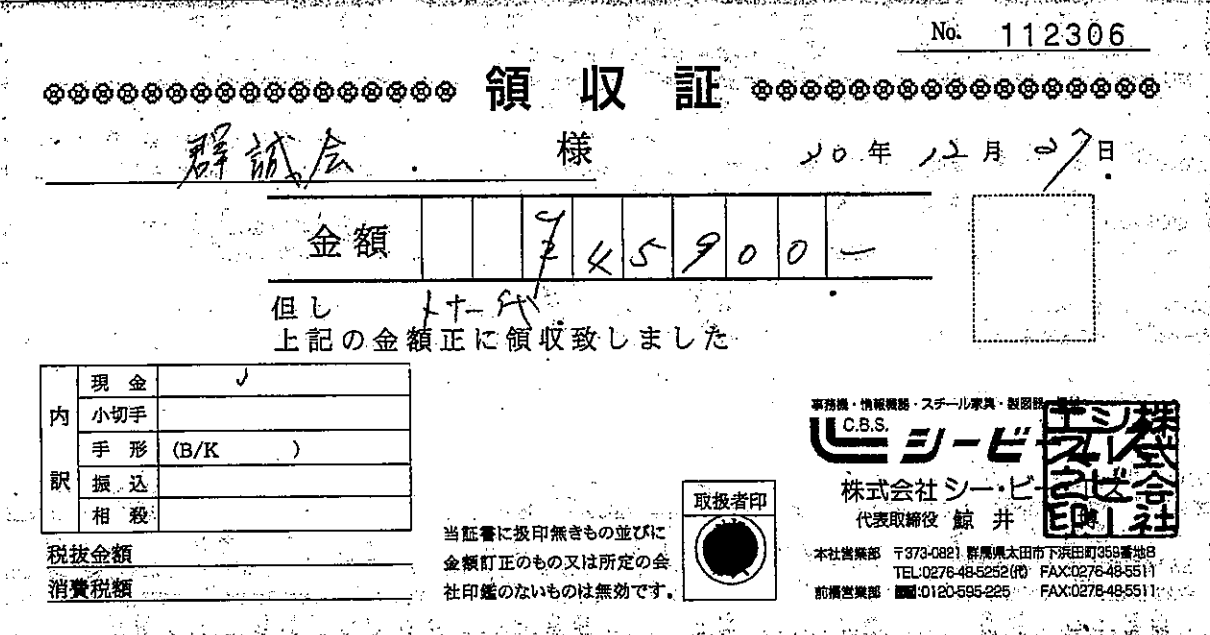 No. 112306
領収証
群誠会 様
20年 12月 27日
金額 ¥45900-
但し トナー代
上記の金額正に領収致しました
内訳
現金 ✓
小切手
手形 (B/K )
振込
相殺
税抜金額
消費税額
当証書に扱印無きもの並びに
金額訂正のもの又は所定の会
社印鑑のないものは無効です。
取扱者印
事務機・情報機器・スチール家具・製図器
C.B.S.
シービー
株式会社 シー・ビー
代表取締役 鯨井
株式会社シービーエス之印
本社営業部 〒373-0821 群馬県太田市下浜田町359番地8
TEL:0276-48-5252(代) FAX:0276-48-5511
前橋営業部 :0120-595-225 FAX:0276-48-5511